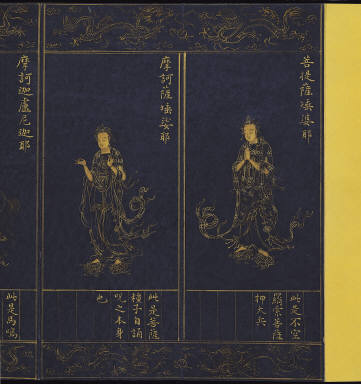 菩提薩埵婆耶
此是不空
羂索菩薩
押大兵
摩訶薩埵婆耶
此是菩薩
種子自誦
呪之本身
也
摩訶迦盧尼迦耶
此是馬鳴